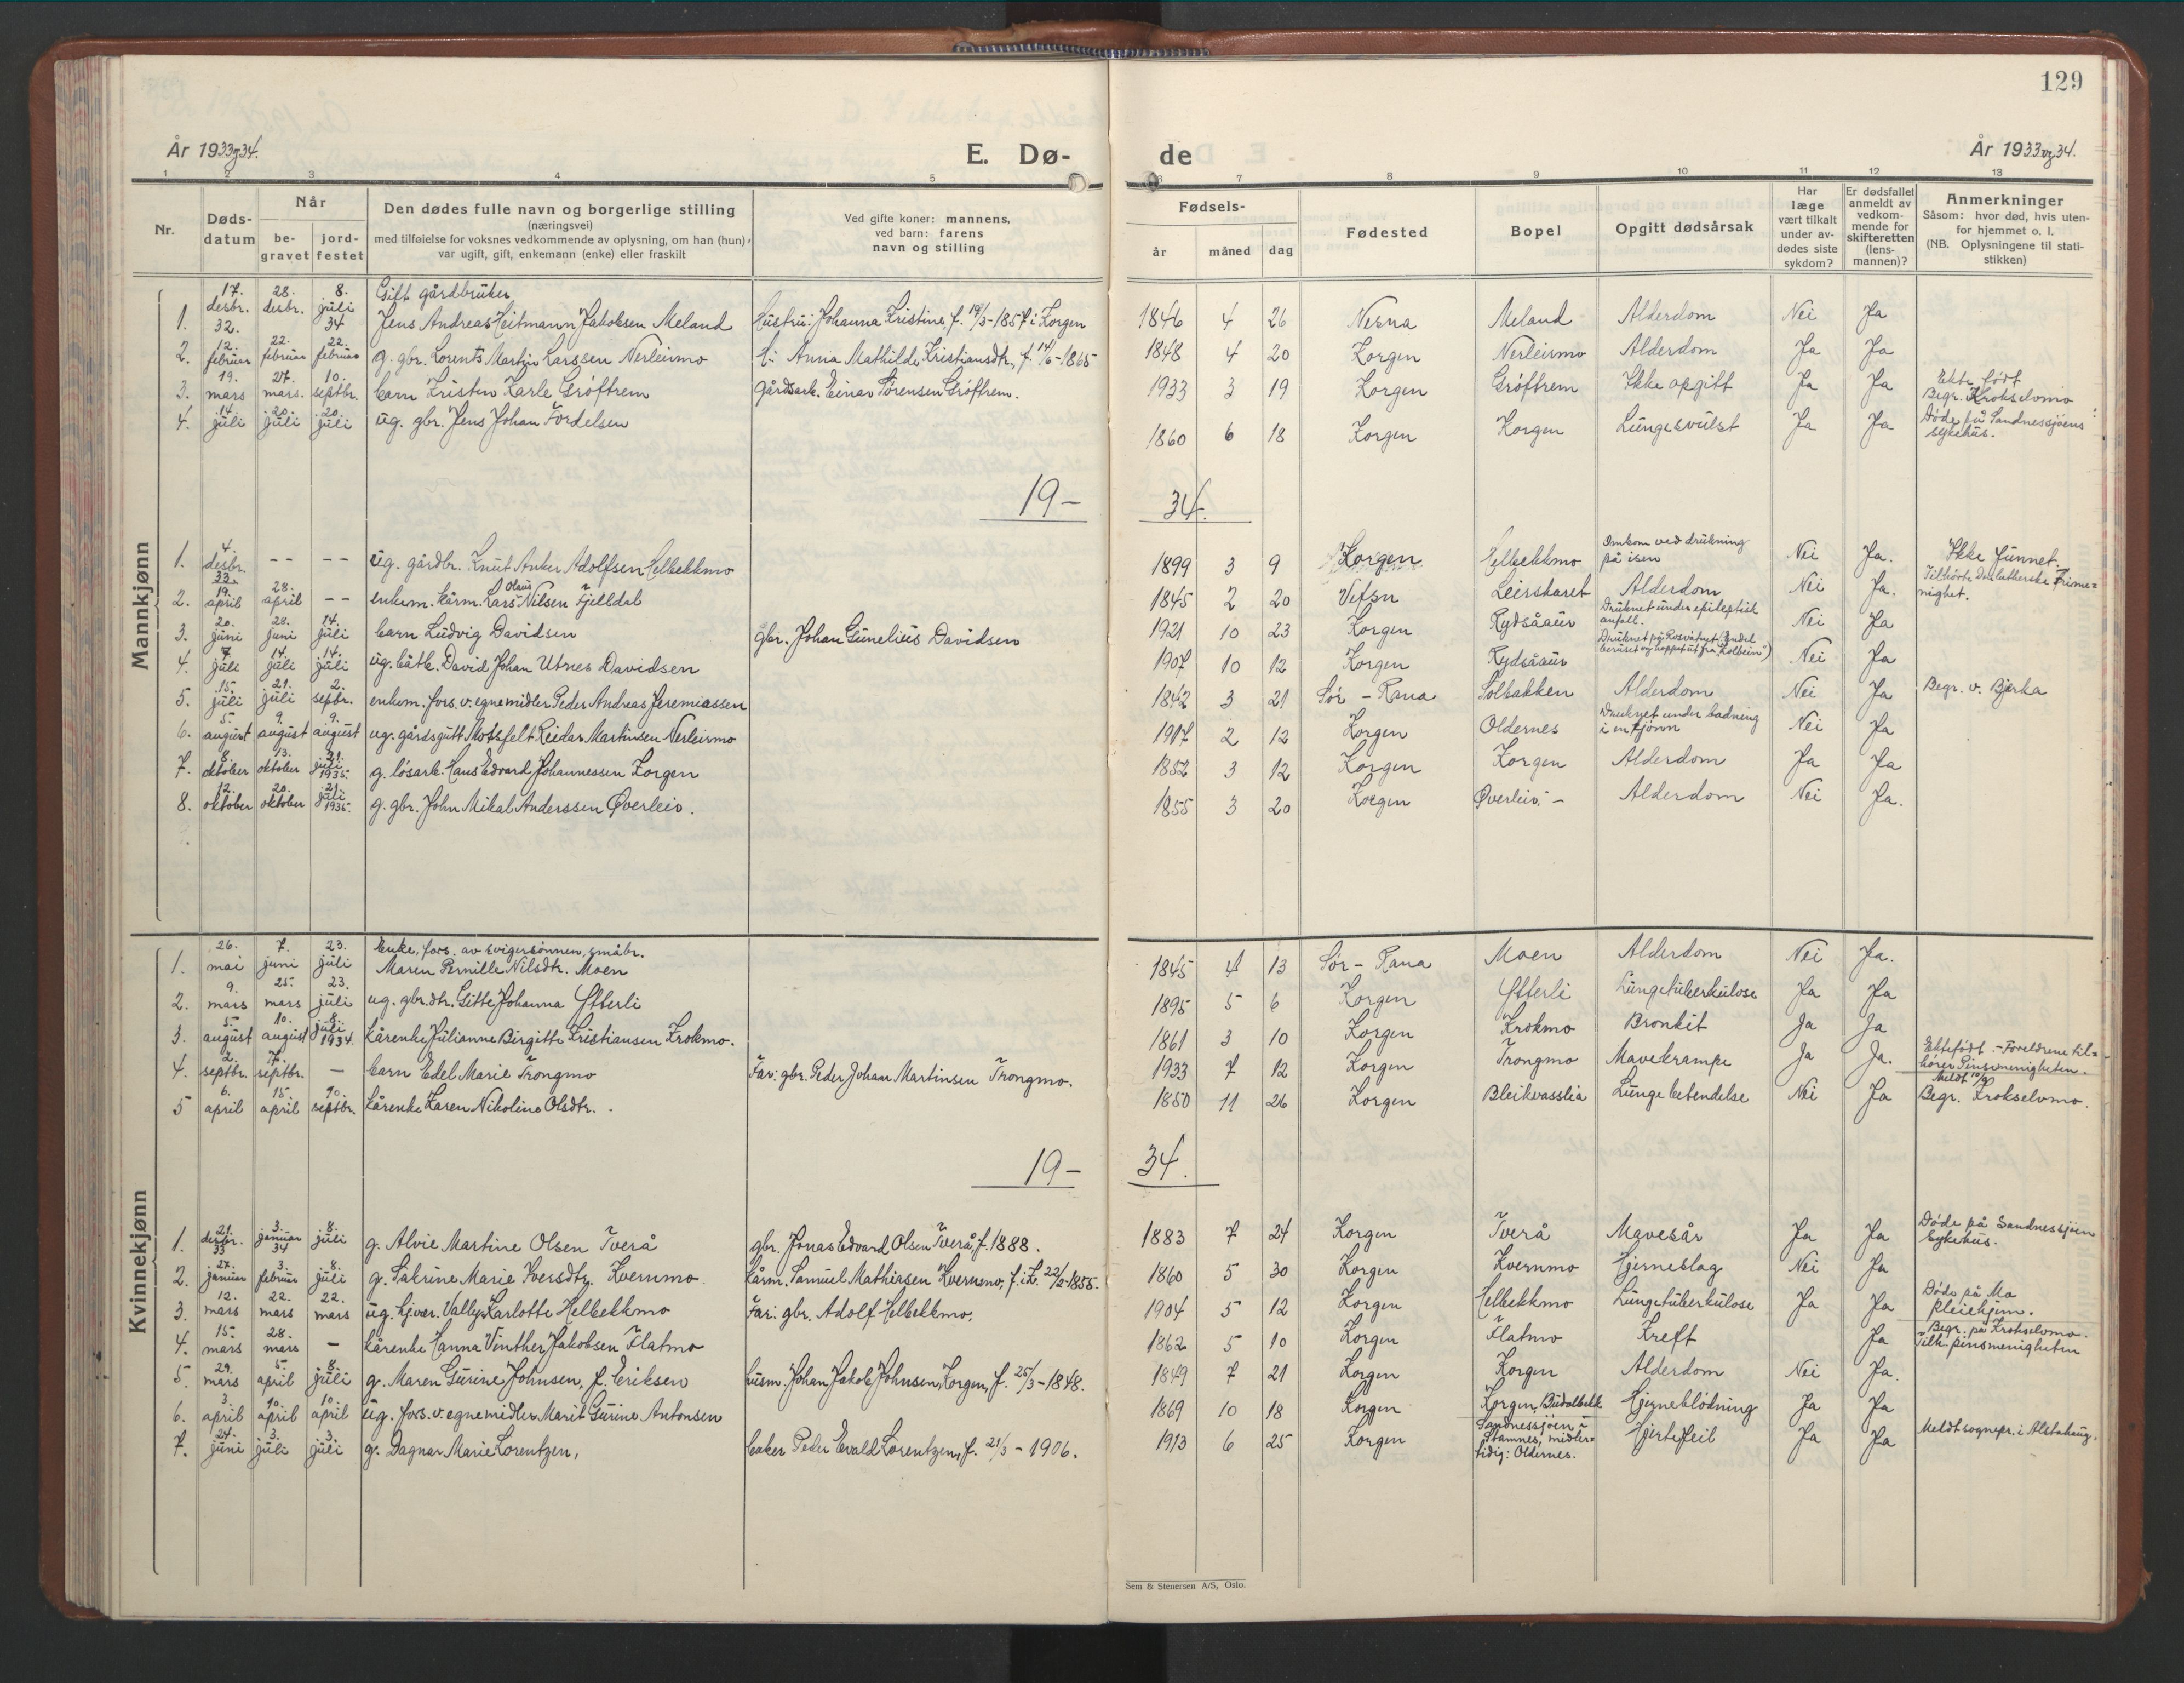 129
År 1933 og 34.
E. Dø-
de
År 1933 og 34.
1 2 3 4 5 6 7 8 9 10 11 12 13
Nr.
Døds-
datum
Når
be-
gravet
jord-
festet
Den dødes fulle navn og borgerlige stilling
(næringsvei)
med tilføielse for voksnes vedkommende av oplysning, om han (hun)
var ugift, gift, enkemann (enke) eller fraskilt
Ved gifte koner: mannens,
ved barn: farens
navn og stilling
Fødsels-
år måned dag
Fødested
Bopel
Opgitt dødsårsak
Har
læge
vært tilkalt
under av-
dødes siste
sykdom?
Er dødsfallet
anmeldt av
vedkom-
mende for
skifteretten
(lens-
mannen)?
Anmerkninger
Såsom: hvor død, hvis uten-
for hjemmet o. l.
(NB. Oplysningene til stati-
stikken)
Mannkjønn
1. 17. desbr. 32. 28. desbr. 8. juli 34 Gift gårdbruker
Jens Andreas Heitmann Jakobsen Meland Hustru: Johanna Kristine, f. 19/3-1857 i Korgen 1846 4 26 Nesna Meland Alderdom Nei Ja
2. 12. februar 22. februar 22. februar g. gbr. Lorents Martin Larssen Nerleirmo H: Anna Mathilde Kristiansdtr, f. 14/6-1865 1848 4 20 Korgen Nerleirmo Alderdom Ja Ja
3. 19. mars 27. mars. 10. septbr. barn Kristen Karle Grøftrem gårdsarb. Einar Sørensen Grøftrem. 1933 3 19 Korgen Grøftrem Ikke opgitt Ja Ja Ekte født
Begr. Krokselvmo
4. 14. juli 20. juli 20. juli ug. gbr. Jens Johan Fordelsen 1860 6 18 Korgen Korgen Lungesvulst Ja Ja Døde på Sandnessjøens
sykehus.
19-34.
1. 4. desbr. 33. -- -- ug. gårdbr. Knut Anker Adolfsen Helbekkmo 1899 3 9 Korgen Helbekkmo Omkom ved drukning
på isen Nei Ja. Ikke funnet.
2. 19. april 28. -- enkem. kårm. Lars Olaus Nilsen Fjelldal 1845 2 20 Vefsn Leirskaret Alderdom Nei Ja. Tilhørte Den lutherske Frime=
nighet.
3. 20. juni 28. juni 14. juli barn Ludvig Davidsen gbr. Johan Gunelius Davidsen 1921 10 23 Korgen Rydsåaur Druknet under epileptisk
anfall. Nei Ja
4. 7. juli 14. juli 14. juli ug. båtb. David Johan Utnes Davidsen 1907 10 12 Korgen Rydsåaur Druknet på Rosvatnet
beruset og hoppet ut fra "Kolbein") Nei Ja
5. 15. juli 21. juli 2. septbr. enkem. fors. v. egne midler Peder Andreas Jeremiassen 1842 3 21 Sør-Rana Solbakken Alderdom Nei Ja Begr. v. Bjerka
6. 5. august 9. august 9. august ug. gårdsgutt Mossfelt Reidar Martinsen Nerleirmo 1917 2 12 Korgen Oldernes Druknet under badning
i en tjønn Nei Ja
7. 8. oktober 13. oktober 21. juli 1935. g. løsarb. Hans Edvard Johannessen Korgen 1852 3 12 Korgen Korgen Alderdom Ja Ja
8. 12. oktober 20. oktober 21. juli 1935. g. gbr. John Mikal Anderssen Øverleir. 1855 3 20 Korgen Øverleir.- Alderdom Nei Ja.
Kvinnekjønn
1. 26. mai 7. juni 23. juli Enke, fors. av svigersønnen, småbr.
Maren Pernille Nilsdtr. Moen 1845 4 13 Sør-Rana Moen Alderdom Nei Ja.
2. 9. mars 25. mars 23. juli ug. gbr.dtr. Gitte Johanna Ytterli 1895 5 6 Korgen Ytterli Lungetuberkulose Ja Ja
3. 5. august 10. august 8. juli 1934. kårenke Julianne Birgitte Kristiansen Krokmo. 1861 3 10 Korgen Krokmo Bronkit Ja Ja
4. 2. septbr. 7. septbr. - barn Edel Marie Trongmo Far: gbr. Peder Johan Martinsen Trongmo. 1933 7 12 Korgen Trongmo Mavekrampe Ja Ja. Ektefødt.-Foreldrene til=
hører Pinsemenigheten.
Meldt 10/9
5 6. april 15. april 10. septbr. kårenke Karen Nikoline Olsdtr. 1850 11 26 Korgen Bleikvasslia Lungebetendelse Nei Ja Begr. Krokselvmo.
19-34.
1. 21. desbr. 33 3. januar 34 8. juli g. Alvie Martine Olsen Tverå gbr. Jonas Edvard Olsen Tverå, f. 1888. 1883 7 24 Korgen Tverå Mavesår Ja Ja Døde på Sandnessjøen
Sykehus.
2. 27. januar 3. februar 8. juli g. Sakrine Marie Iversdtr. Kvernmo kårm. Samuel Mathiasen Kvernmo, f. i K. 22/2-1855. 1860 5 30 Korgen Kvernmo Hjerneslag Nei Ja
3. 12. mars 22. mars 22. mars ug. hjvær. Vally Karlotte Helbekkmo Far: gbr. Adolf Helbekkmo. 1904 5 12 Korgen Helbekkmo Lungetuberkulose Ja Ja Døde på Mo
pleiehjem.
4. 15. mars 28. mars - kårenke Hanna Vinther Jakobsen Flatmo 1862 5 10 Korgen Flatmo Kreft Ja Begr. på Krokselvmo.
Tilh. pinsmenigheten
5. 29. mars 5. april 8. juli g. Maren Gurine Johnsen, f. Eriksen husm. Johan Jakob Johnsen, Korgen, f. 25/3-1848. 1849 7 21 Korgen Korgen Alderdom Nei Ja.
6. 3. april 10. april 10. april ug. fors. v. egne midler Marit Gurine Antonsen 1869 10 18 Korgen Korgen, Budalbekk Hjerneblødning Ja Ja
7. 24. juni 3. juli 3. juli g. Dagnar Marie Lorentzen, baker Peder Evald Lorentzen, f. 21/3-1906. 1913 6 25 Korgen Sandnessjøen i
Stamnes, midler=
tidig: Oldernes. Hjertefeil Ja Ja Meldt sognepr. i Alstahaug.
Sem & Stenersen A/S, Oslo.